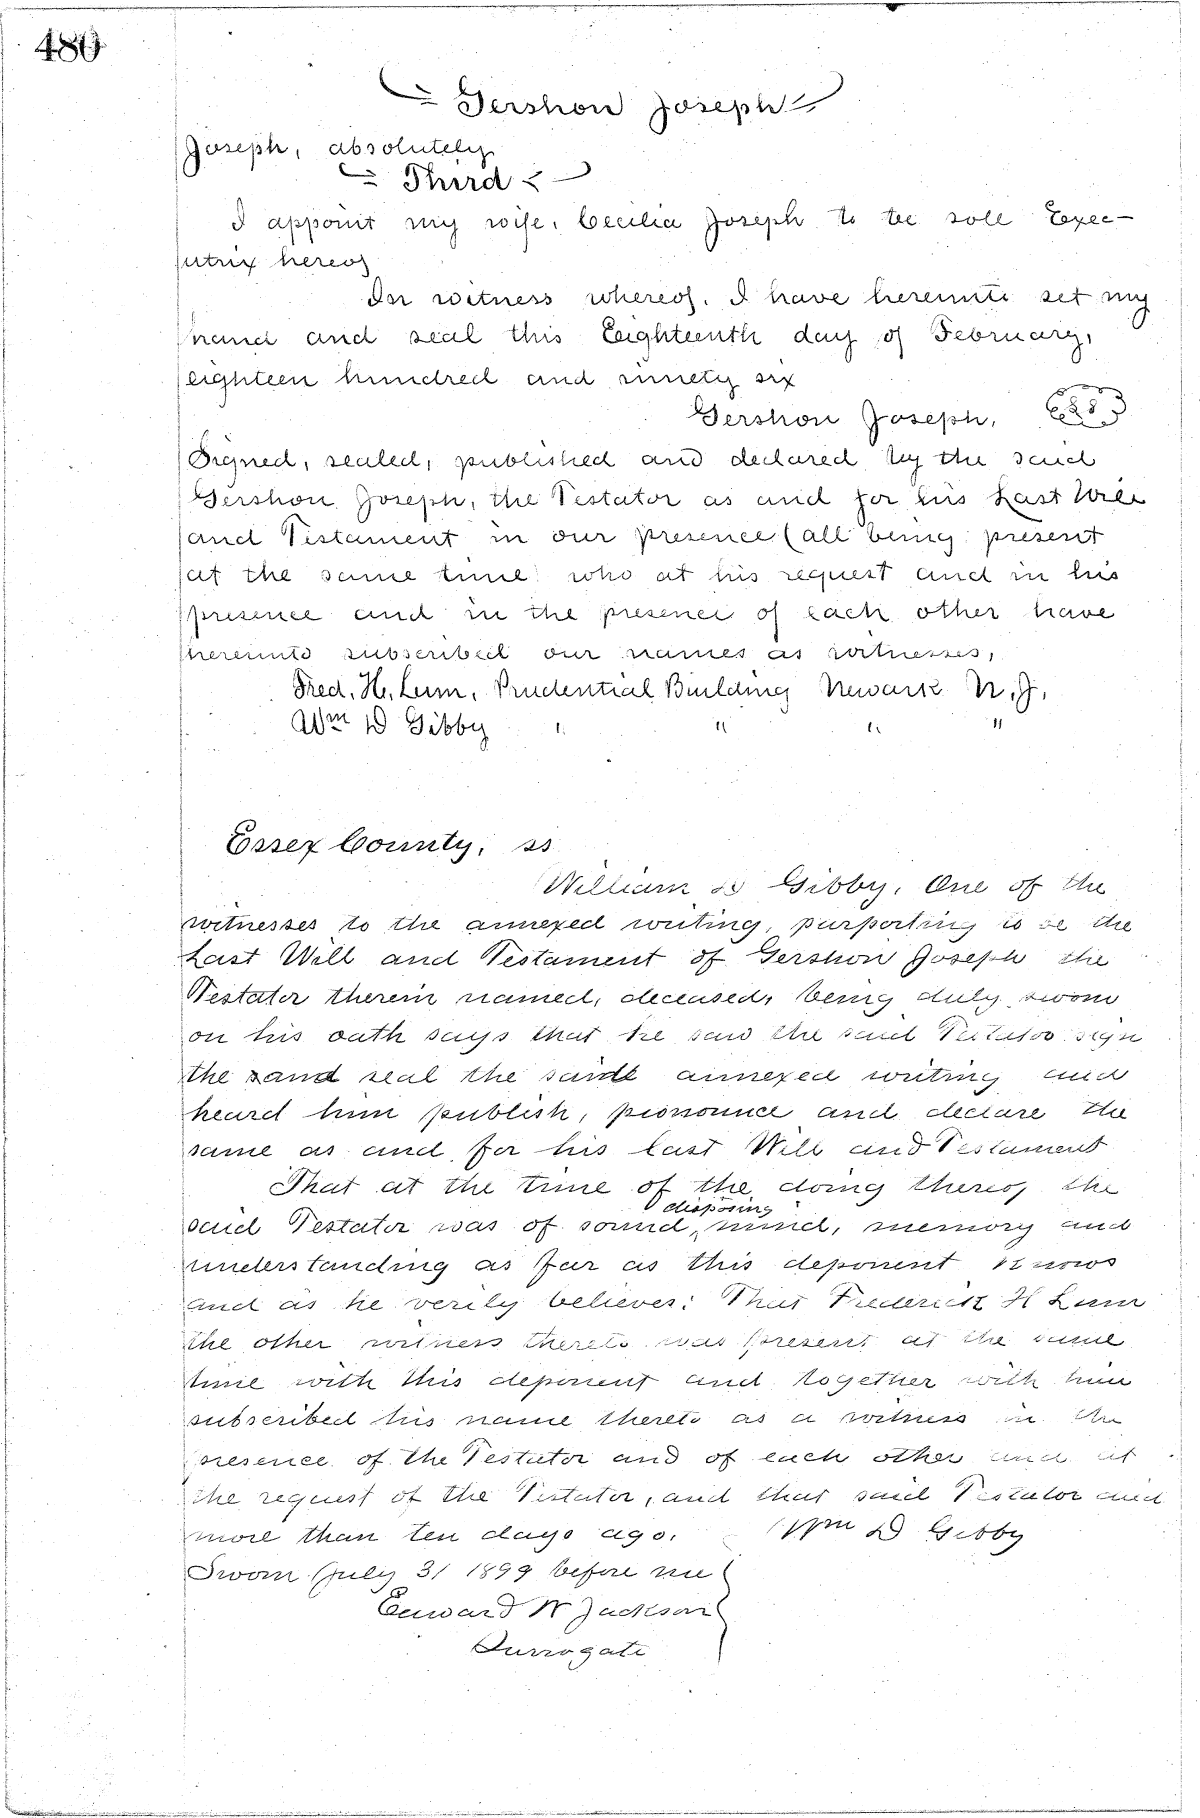 480
Gershon Joseph
Joseph, absolutely
Third
I appoint my wife, Cecilia Joseph to be sole Exec-
utrix hereof
In witness whereof, I have hereunto set my
hand and seal this Eighteenth day of February,
eighteen hundred and ninety six
Gershon Joseph,
Signed, sealed, published and declared by the said
Gershon Joseph, the Testator as and for his Last Will
and Testament in our presence (all being present
at the same time) who at his request and in his
presence and in the presence of each other have
hereunto subscribed our names as witnesses,
Fred. H. Lum, Prudential Building Newark N. J.
Wm D Gibby " " " "
Essex County, ss
William D Gibby, One of the
witnesses to the annexed writing, purporting to be the
Last Will and Testament of Gershon Joseph the
Testator therein named, deceased, being duly sworn
on his oath says that he saw the said Testator sign
the and seal the said annexed writing and
heard him publish, pronounce and declare the
same as and for his last Will and Testament
That at the time of the doing thereof the
said Testator was of sound, disposing mind, memory and
understanding as far as this deponent knows
and as he verily believes: That Frederick H Lum
the other witness thereto was present at the same
time with this deponent and together with him
subscribed his name thereto as a witness in the
presence of the Testator and of each other and at
the request of the Testator, and that said Testator died
more than ten days ago. Wm D Gibby
Sworn July 31 1899 before me
Edward W Jackson
Surrogate